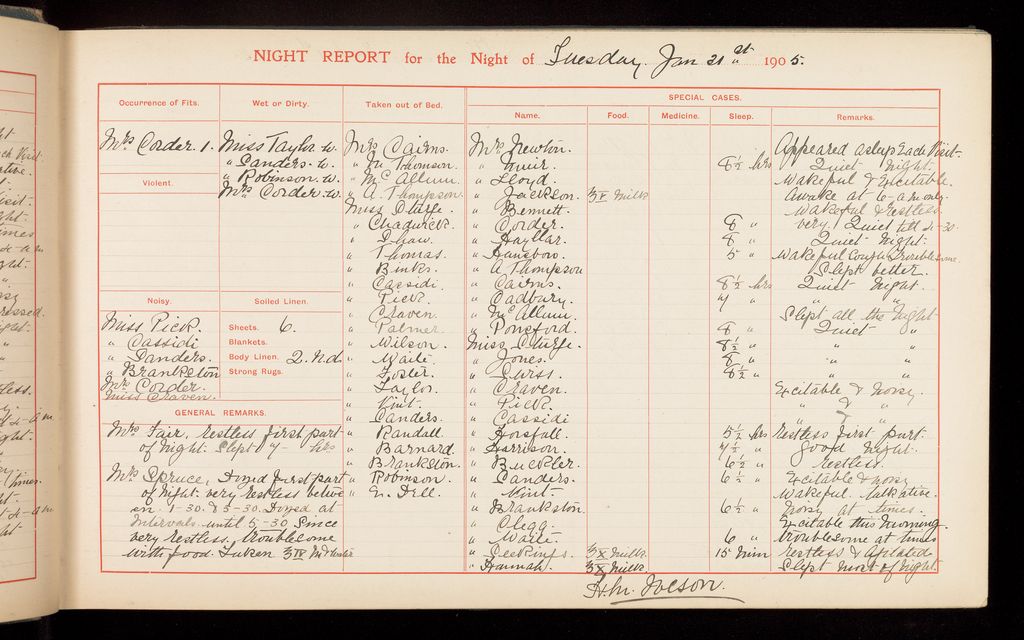 NIGHT REPORT for the Night of Tuesday. Jan 21st 1905.
Occurrence of Fits.
Mrs Corder 1.
Violent.
Noisy.
Miss Pick.
" Cassidi
" Sanders.
" Brankston
Mrs Corder.
Miss Craven.
Wet or Dirty.
Miss Taylor w.
" Sanders. w.
" Robinson. w.
Mrs Corder. w.
Soiled Linen.
Sheets. 6.
Blankets.
Body Linen. 2. N.d.
Strong Rugs.
GENERAL REMARKS.
Mrs Fair, restless first part
of night. Slept 7 - hrs
Mrs Spruce, Dozed first part
of night. very restless betwe
en 1-30. & 3-30. Dozed at
intervals until 5-30 Since
very restless, troublesome
with food. Taken
Taken out of Bed.
Mrs Cairns.
" M Thomson.
" McAllum.
" A. Thompson.
Miss Sturge.
" Chadwick.
" Shaw.
" Thomas.
" Binks.
" Cassidi
" Pick.
" Craven.
" Palmer.
" Wilson.
" Waite.
" Foster.
" Taylor.
" Vint.
" Sanders.
" Randall.
" Barnard.
" Brankston.
" Robinson.
" E. Dell.
SPECIAL CASES.
Name. Food. Medicine. Sleep. Remarks.
Mrs Newton. Appeared asleep Each Visit.
" Muir. 8½ hrs Quiet Night.
" Lloyd. Wakeful & Excitable.
" Jackson ℥x Milk. Awake at 6-a.m. only.
" Bennett. Wakeful & restless.
" Corder. 8 " very. Quiet till 4-30
" Hayllar. 8 " Quiet Night.
" Hansbow. 5 " Wakeful Cough Troublesome.
" A Thompson Slept better.
" Cairns. 8½ hrs Quiet Night.
" Cadbury. 7 " " "
" McAllum. Slept all the Night
" Ponsford. 8 " Quiet "
Miss Sturge. 8½ " " "
" Jones. 8 " " "
" Purss. 8½ " " "
" Craven. Excitable & noisy.
" Pick. " & "
" Cassidi "
" Horsfall. 5½ hrs restless first part.
" Harrison. 7½ " Good Night.
" Buckler. 6½ " restless.
" Sanders. 6½ " Excitable & noisy
" Vint. Wakeful. talkative.
" Brankston. 6½ " noisy at times.
" Clegg. Excitable this Morning.
" Waite. 6 " troublesome at times
" Seekings. ℥x Milk. 15 Min restless & Agitated
" Hannah. ℥x Milk. Slept most of Night.
H.M. Jolson.